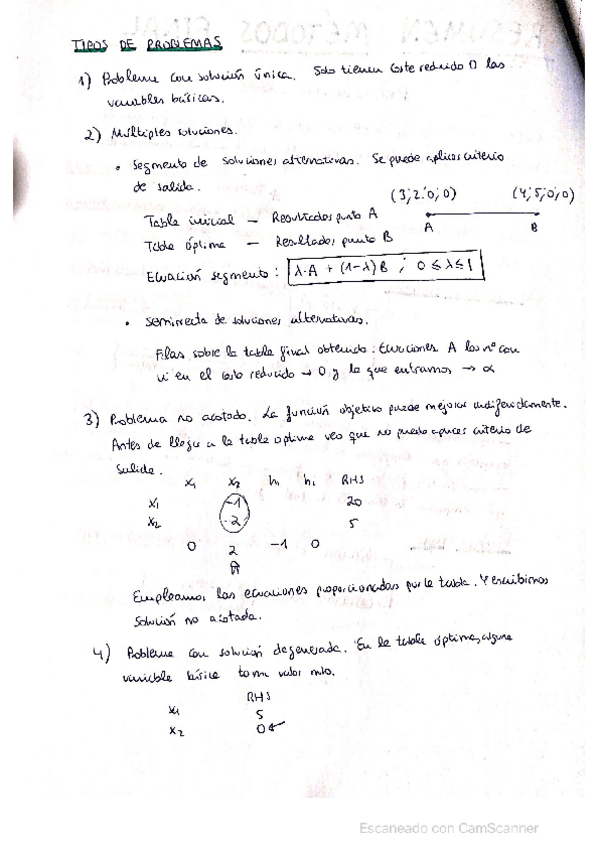 TIPOS DE PROBLEMAS
1) Problema con solución única. Solo tienen coste reducido 0 las
variables básicas.
2) Múltiples soluciones.
• Segmento de soluciones alternativas. Se puede aplicar criterio
de salida.
(3,2,0,0) (4,5,0,0)
Tabla inicial — Resultados punto A
A B
Tabla óptima — Resultados punto B
Ecuación segmento: λ·A + (1-λ)B ; 0 ≤ λ ≤ 1
• Semirrecta de soluciones alternativas.
Filas sobre la tabla final obtenido: Ecuaciones. A las nº con
vi en el costo reducido → 0 y la que entramos → α
3) Problema no acotado. La función objetivo puede mejorar indefinidamente.
Antes de llegar a la tabla óptima veo que no puedo aplicar criterio de
salida.
x₁ x₂ h₁ h₁ RHS
x₁ -1 20
x₂ -2 5
0 2 -1 0
Empleamos las ecuaciones proporcionadas por la tabla. Y escribimos
solución no acotada.
4) Problema con solución degenerada. En la tabla óptima, alguna
variable básica toma valor nulo.
RHS
x₁ 5
x₂ 0 ←
Escaneado con CamScanner